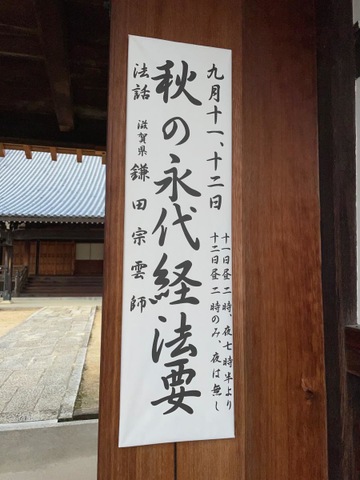 九月十一、十二日
十一日昼 二時、夜七時半より
十二日昼 二時のみ、夜は無し
秋の永代経法要
法話 滋賀県 鎌田宗雲師